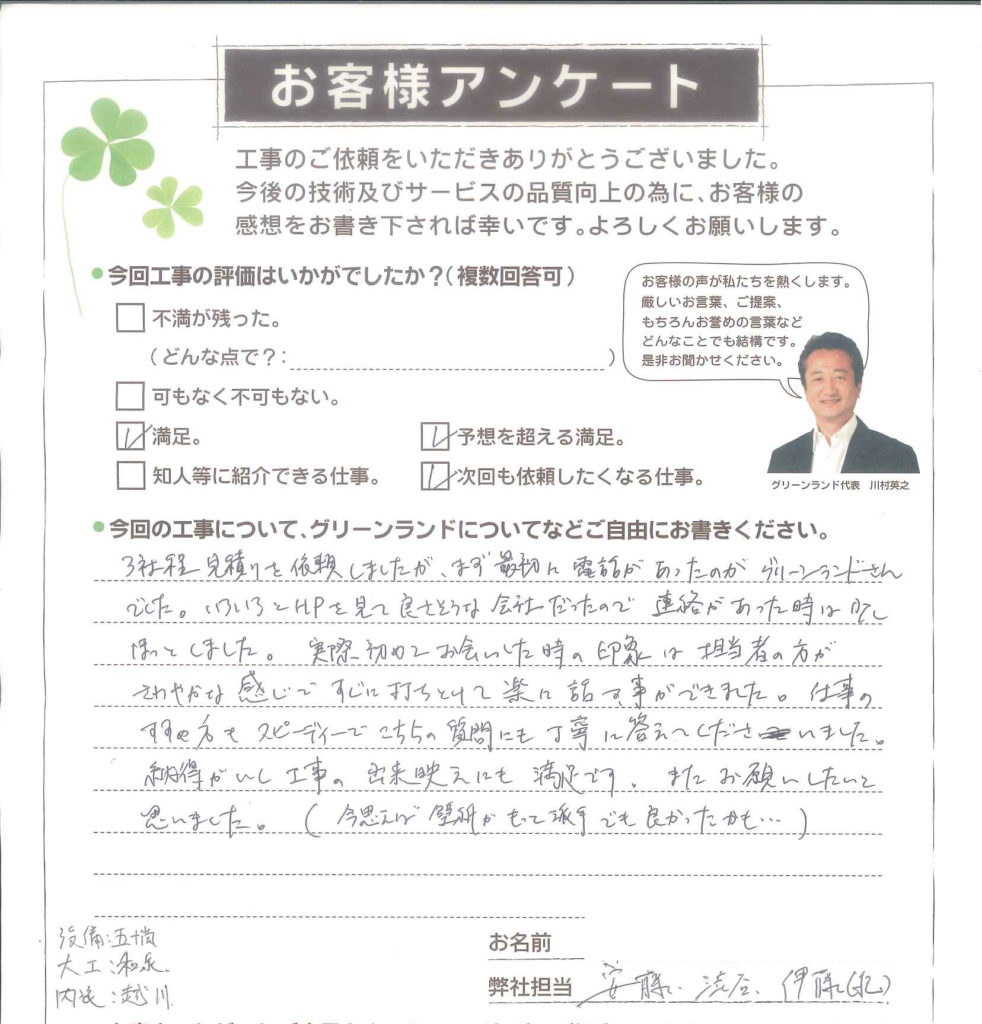 お客様アンケート
工事のご依頼をいただきありがとうございました。
今後の技術及びサービスの品質向上の為に、お客様の
感想をお書き下されば幸いです。よろしくお願いします。
●今回工事の評価はいかがでしたか？（複数回答可）
不満が残った。
（どんな点で？：　）
可もなく不可もない。
満足。
予想を超える満足。
知人等に紹介できる仕事。
次回も依頼したくなる仕事。
お客様の声が私たちを熱くします。
厳しいお言葉、ご提案、
もちろんお誉めの言葉など
どんなことでも結構です。
是非お聞かせください。
グリーンランド代表　川村英之
●今回の工事について、グリーンランドについてなどご自由にお書きください。
3社程見積りを依頼しましたが、まず最初に電話があったのがグリーンランドさん
でした。いろいろとHPを見て良さそうな会社だったので連絡があった時は少し
ほっとしました。実際初めてお会いした時の印象は担当者の方が
さわやかな感じですぐに打ちとけて楽に話す事ができました。仕事の
すすめ方もスピーディーでこちらの質問にも丁寧に答えてくださいました。
納得がいく工事の出来映えにも満足です。またお願いしたいと
思いました。（今思えば壁紙がもっと派手でも良かったかも…）
設備:五十嵐
大工:和泉
内装:越川
お名前
弊社担当 安藤、渋谷、伊藤